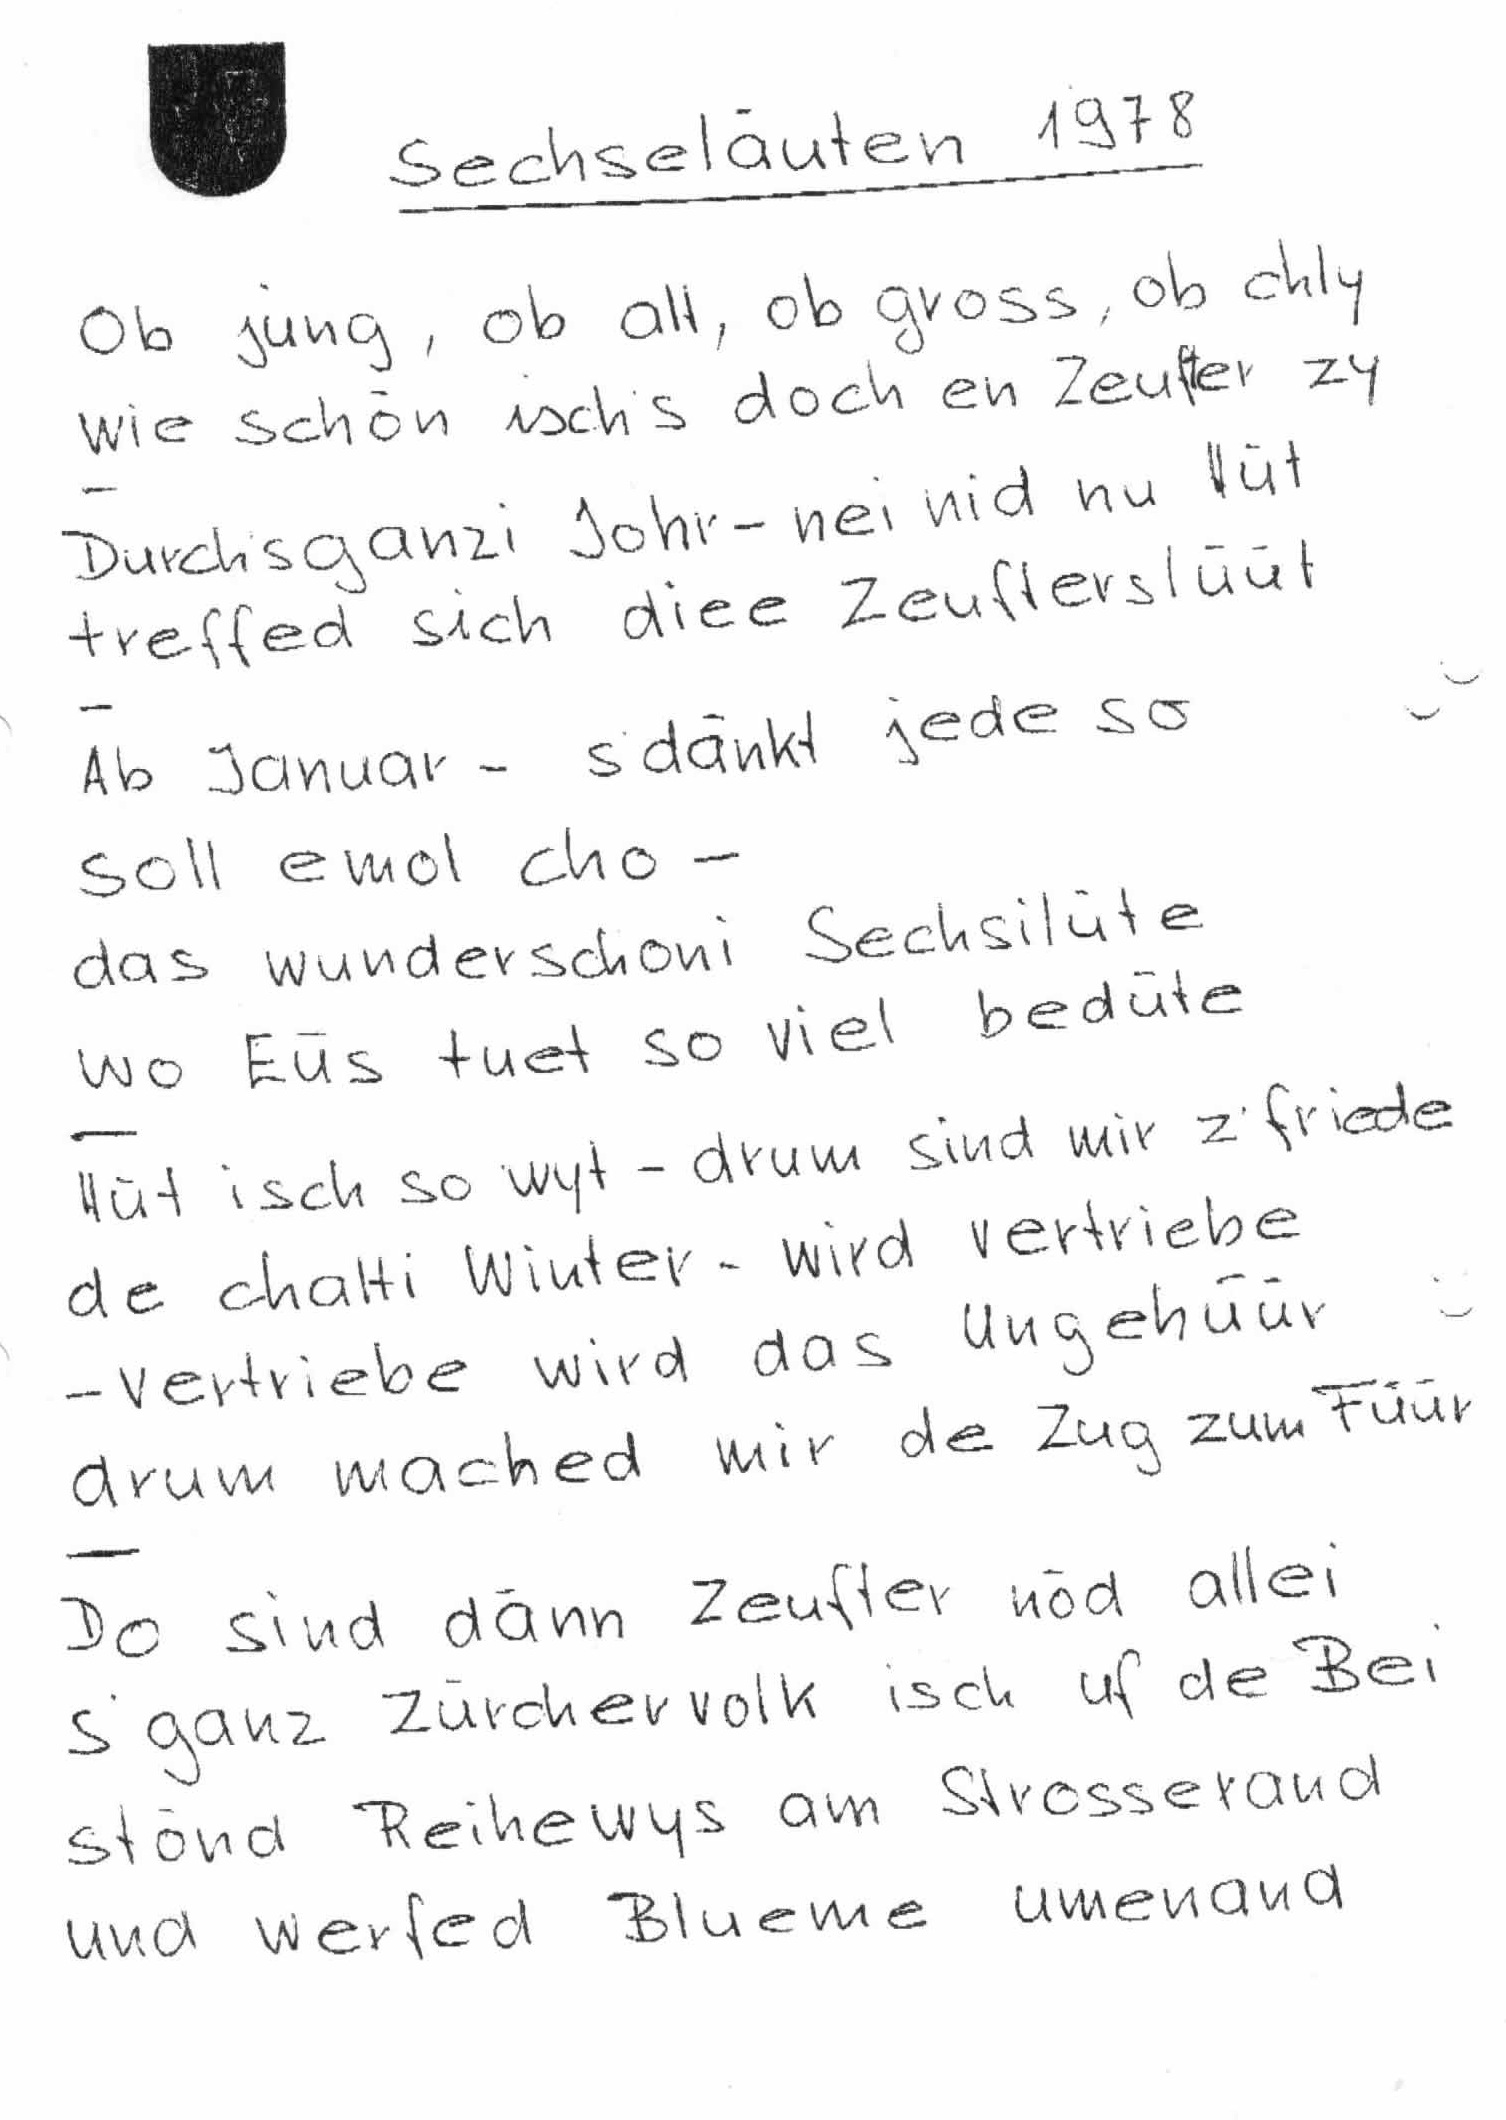 Sechseläuten 1978
Ob jung, ob alt, ob gross, ob chly
wie schön isch's doch en Zeufter zy
–
Durch's ganzi Johr – nei nid nu Hüt
treffed sich diee Zeufterslüüt
–
Ab Januar – s'dänkt jede so
soll emol cho –
das wunderschoni Sechsilüte
wo Eüs tuet so viel bedüte
–
Hüt isch so wyt – drum sind mir z'friede
de chalti Winter – wird vertriebe
– vertriebe wird das Ungehüür
drum mached mir de Zug zum Füür
–
Do sind dänn Zeufter nöd allei
s'ganz Zürchervolk isch uf de Bei
stönd Reihewys am Strosserand
und werfed Blueme umenand